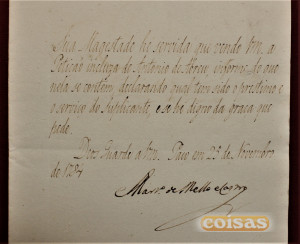 Sua Magestade he servida que vendo Vm. a
Petição incluza de Antonio de Abreu, informe do que
nela se contém declarando qual tem sido o prestimo e
o serviço do Suplicante, e se he digno da graça que
pede.
Deos Guarde a Vm. Paço em 25 de Novembro
de
Mart. de Mello e Castro
coisas